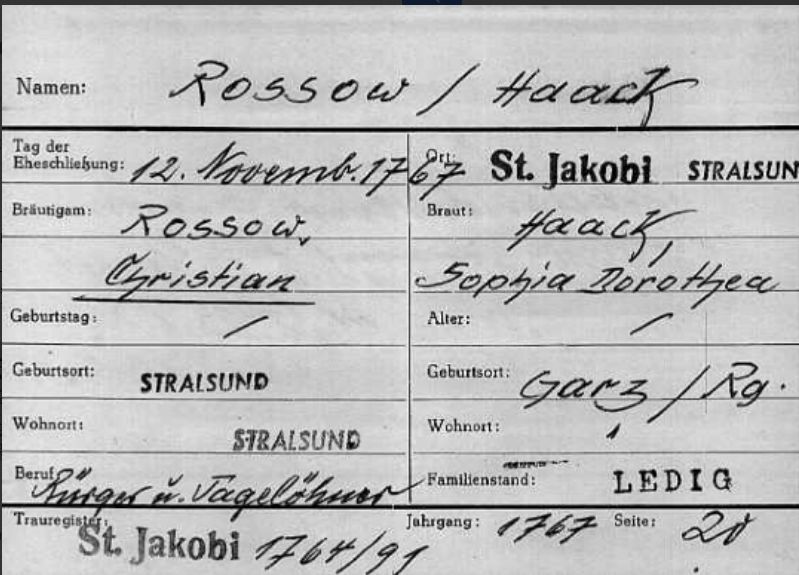 Namen: Rossow / Haack
Tag der
Eheschließung: 12. Novemb. 1767 Ort: St. Jakobi STRALSUN
Bräutigam: Rossow, Braut: Haack,
Christian Sophia Dorothea
Geburtstag: / Alter: /
Geburtsort: STRALSUND Geburtsort: Garz / Rg.
Wohnort: STRALSUND Wohnort:
Beruf: Bürger u. Tagelöhner Familienstand: LEDIG
Trauregister: St. Jakobi 1764/91 Jahrgang: 1767 Seite: 20